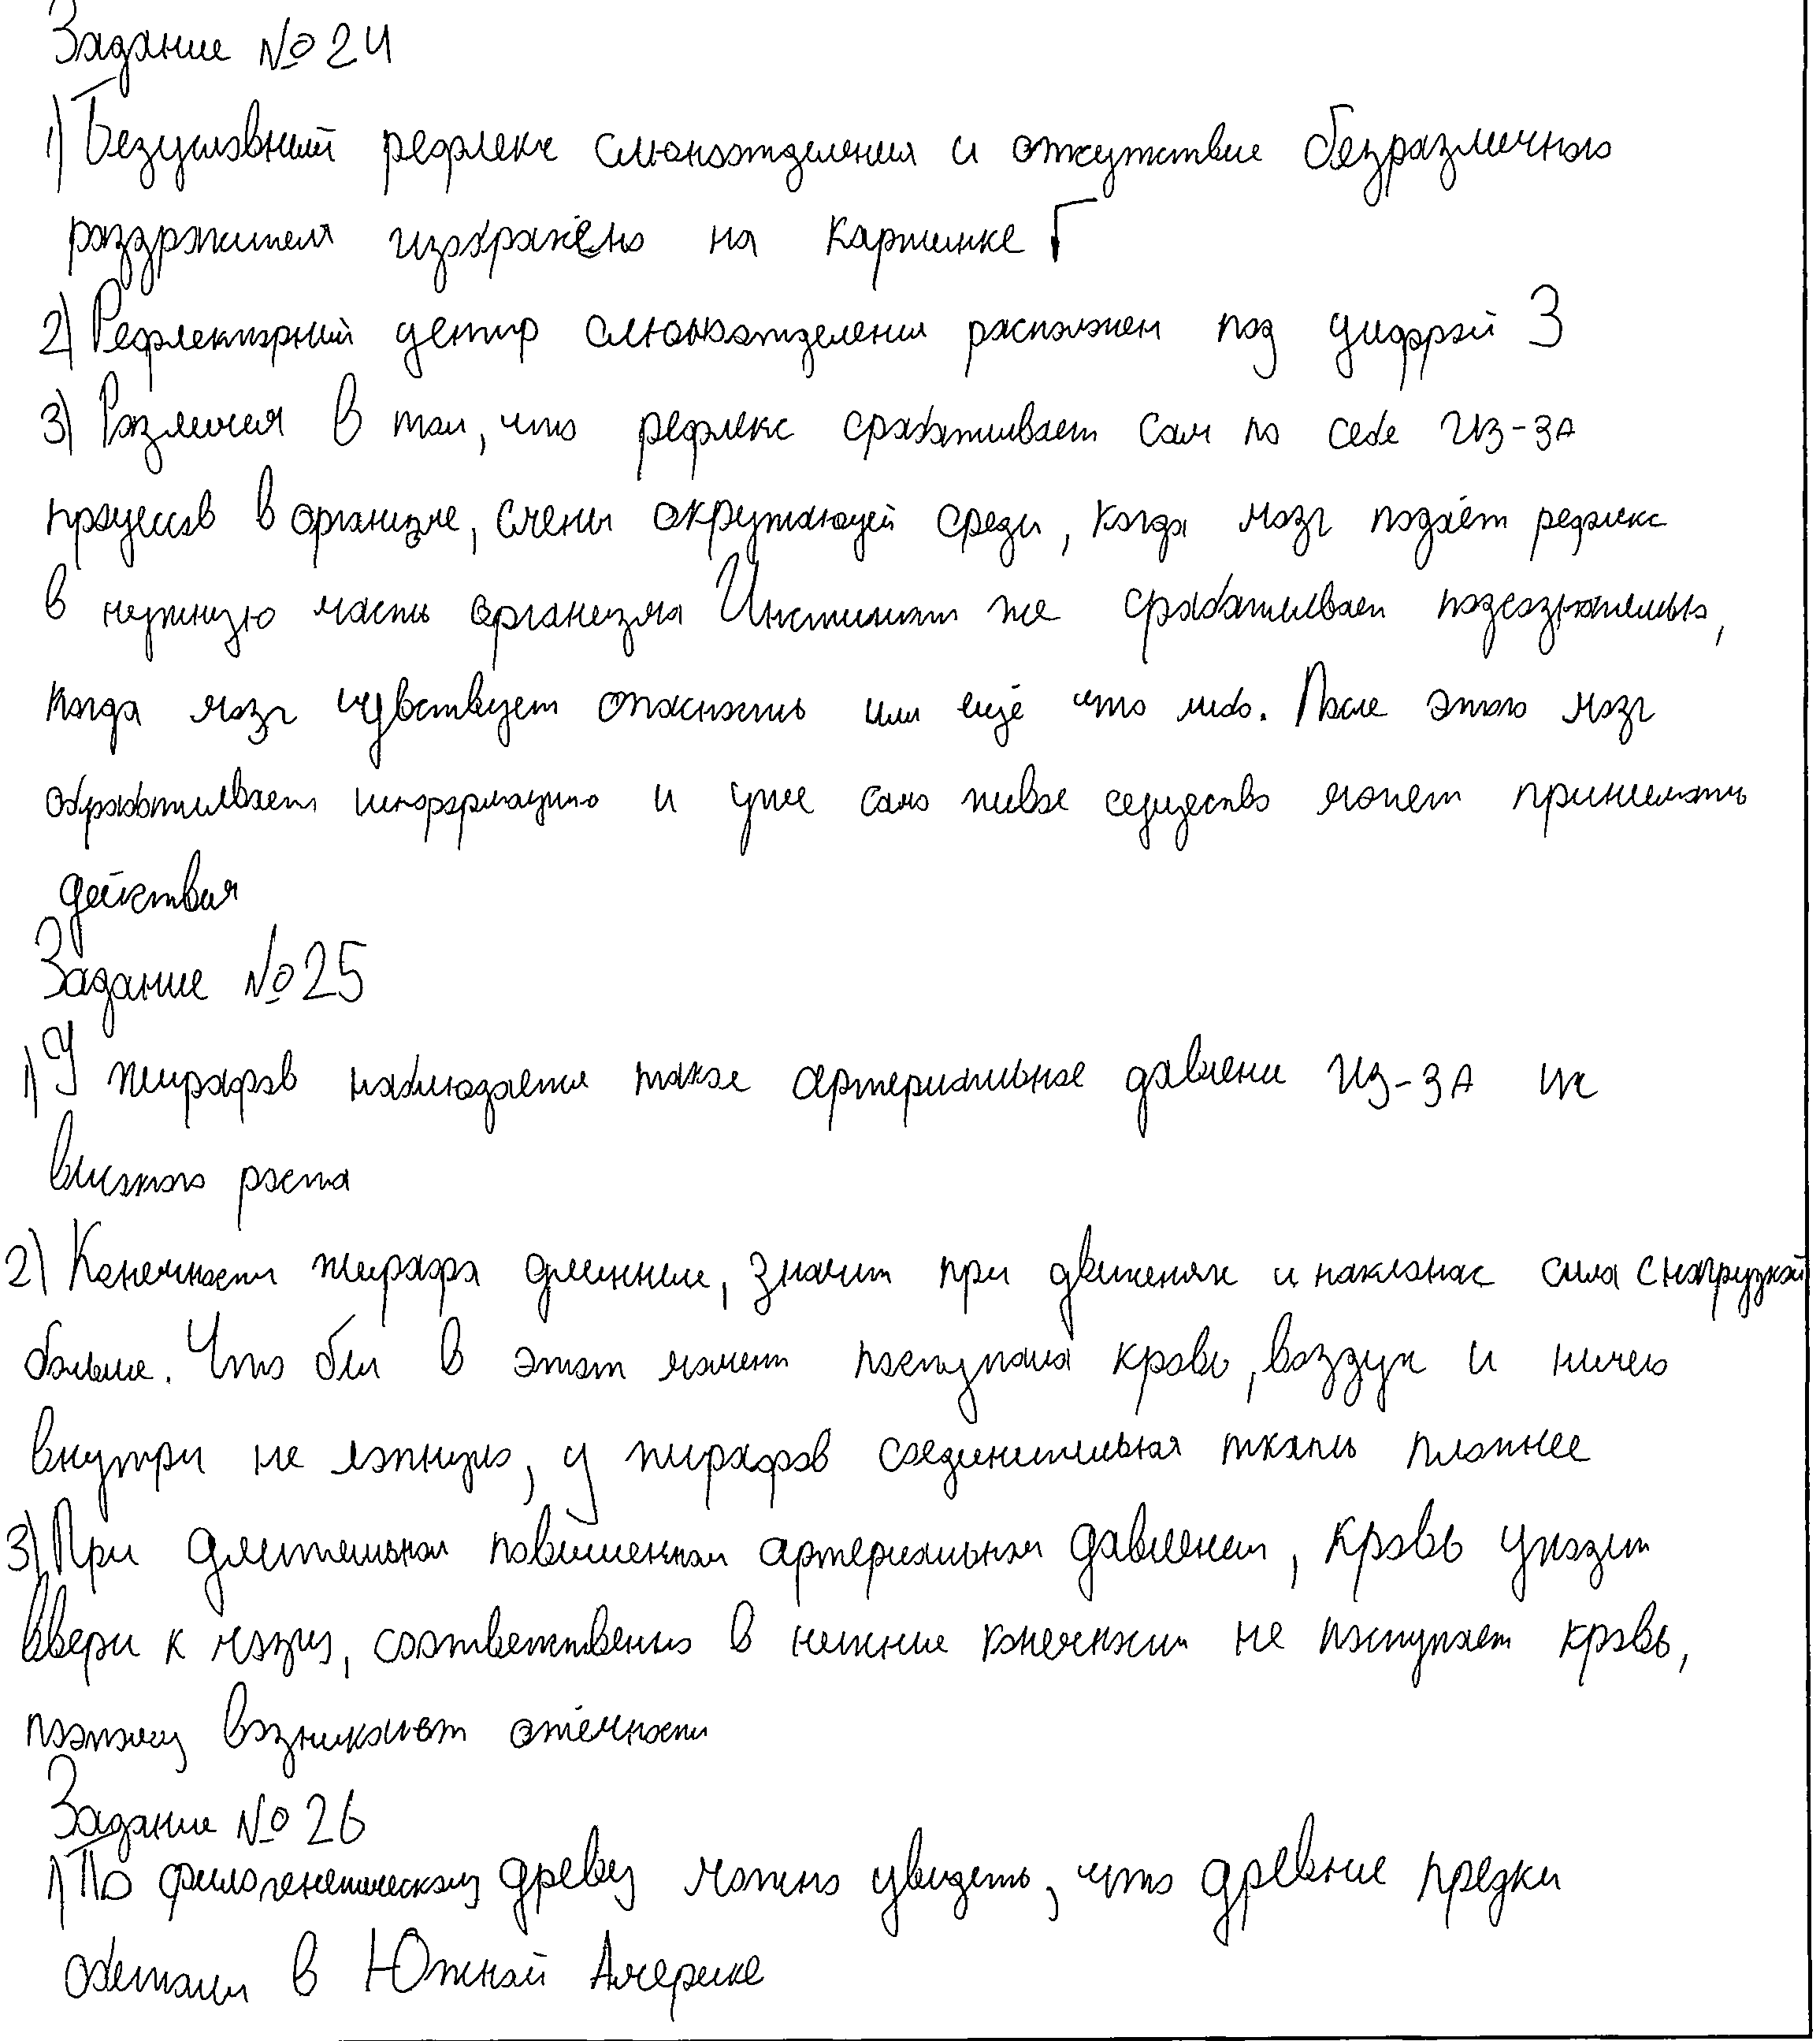 Задание №24
1) Безусловный рефлекс слюноотделения и отсутствие безразличного
раздражителя изображено на картинке Г
2) Рефлекторный центр слюноотделения расположен под цифрой 3
3) Различия в том, что рефлекс срабатывает сам по себе из-за
процессов в организме, смены окружающей среды, когда мозг подаёт рефлекс
в нужную часть организма Инстинкт же срабатывает подсознательно,
когда мозг чувствует опасность или ещё что либо. После этого мозг
обрабатывает информацию и уже само живое существо может принимать
действия
Задание №25
1) У жирафов наблюдается такое артериальное давлени из-за их
высокого роста
2) Конечности жирафа длинные, значит при движенях и наклонах сила с нагрузкой
больше. Что бы в этот момент поступала кровь, воздух и ничего
внутри не лопнуло, у жирафов соединительная ткань плотнее
3) При длительном повышенном артериальном давлении, кровь уходит
вверх к мозгу, соответственно в нижние конечности не поступает кровь,
поэтому возникают отёчности
Задание №26
1) По филогенетическому древу можно увидеть, что древние предки
обитали в Южной Америке